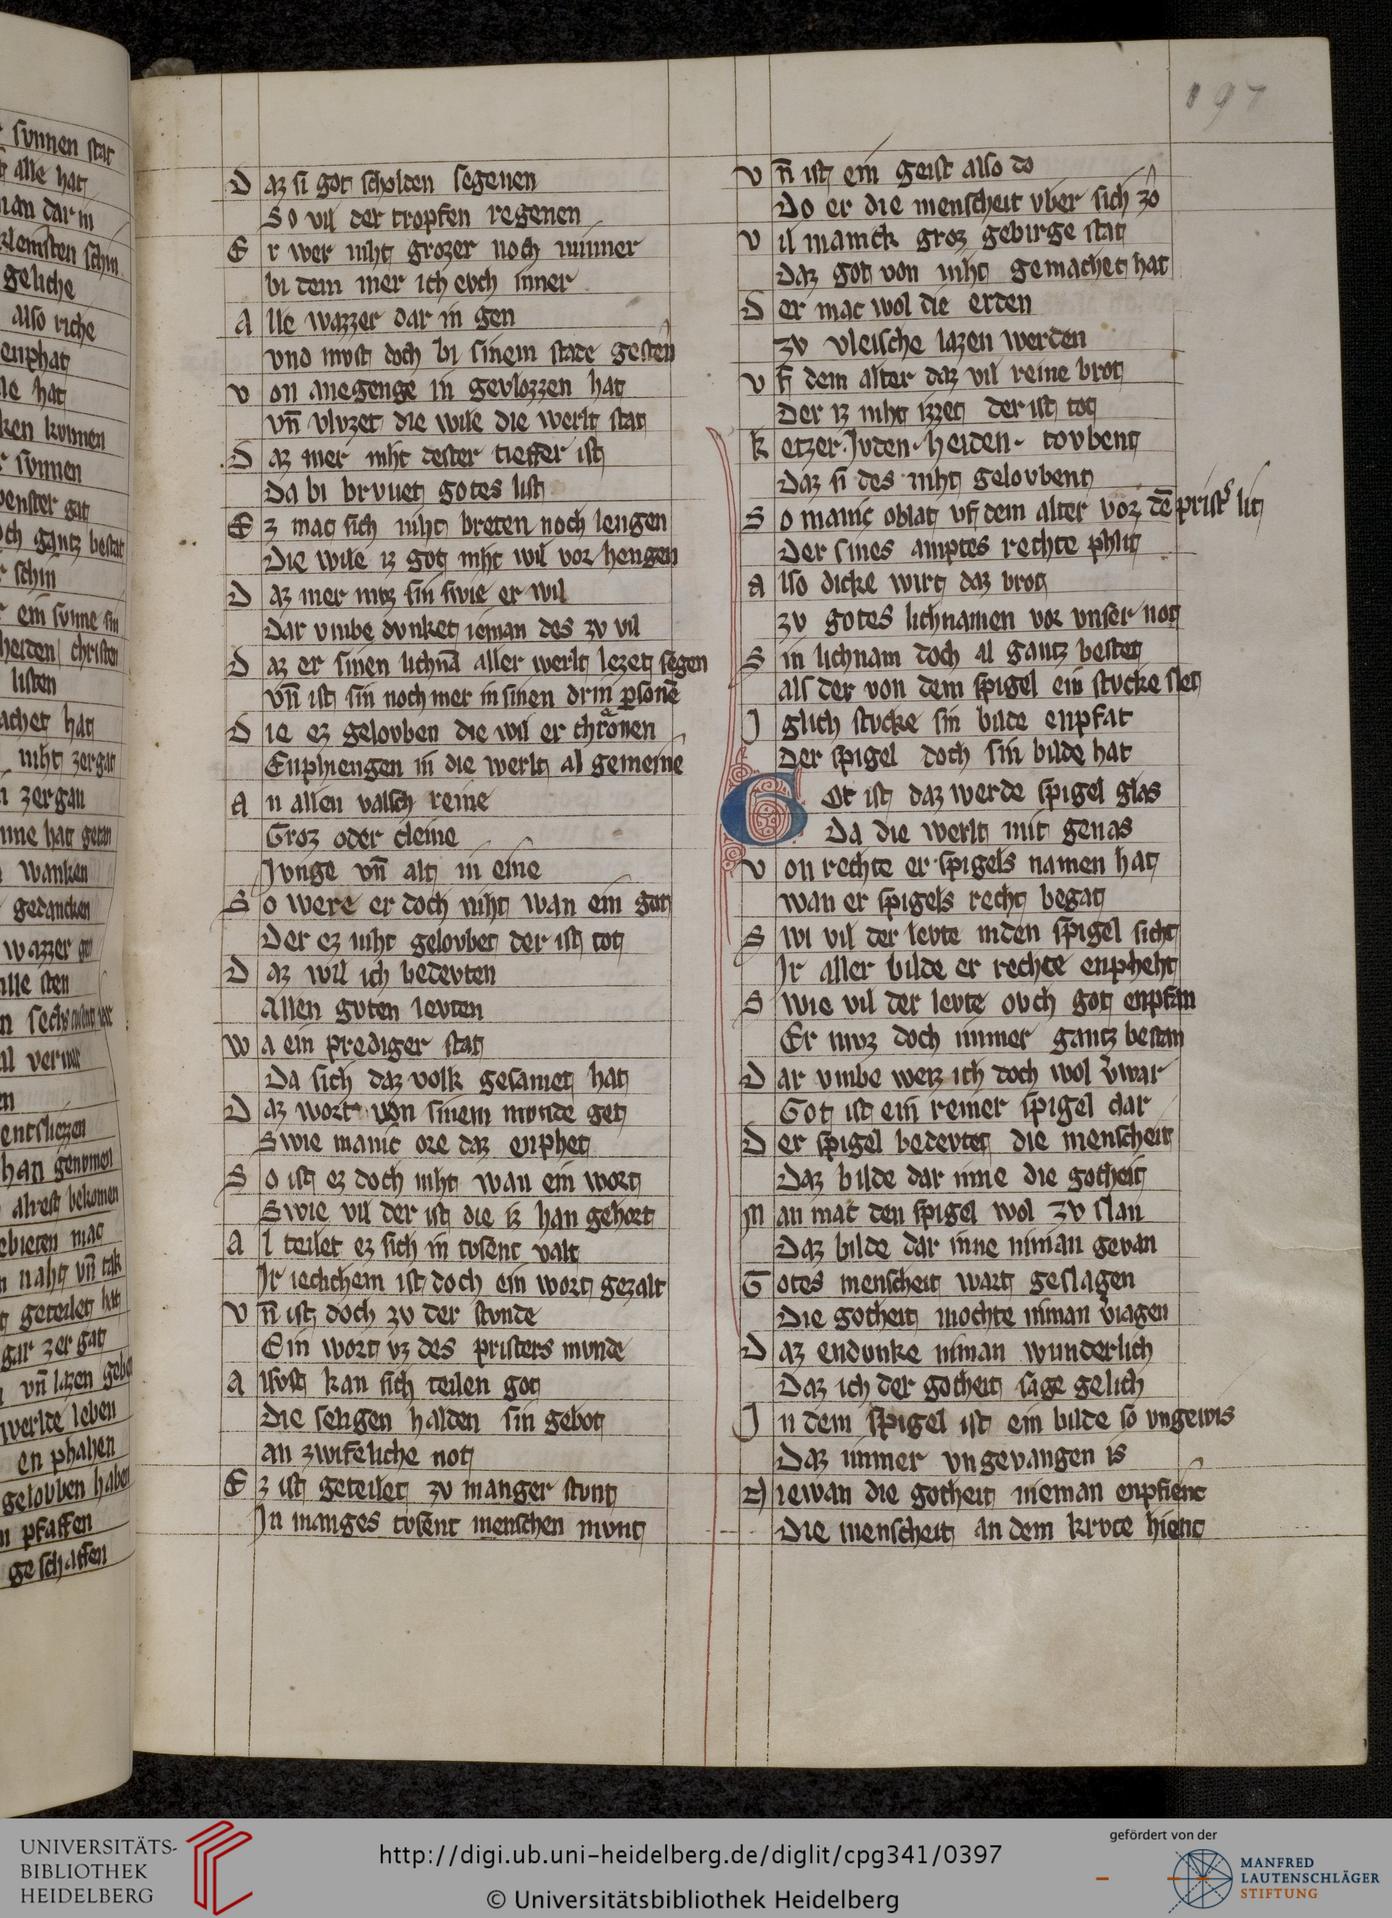 197
Daz si got scholden segenen
So vil der tropfen regenen
Er wer niht grozer noch minner
bi dem mer ich evch inner
Alle wazzer dar in gen
vnd mvst doch bi sinem state gesten
von anegenge in gevlozzen hat
vn̄ vlvzet die wile die werlt stat
Daz mer niht dester tieffer ist
Da bi brvuet gotes list
Ez mag sich niht breten noch lengen
Die wile iz got niht wil vor hengen
Daz mer mvz sin swie er wil
Dar vmbe dvnket ieman des zv vil
Daz er sinen lichnā aller werlt lezet segen
vn̄ ist sin noch mer in sinen drin psonē
Die ez gelovben die wil er chronen
Enphiengen in die werlt al gemeine
An allen valsch reine
Groz oder cleine
Jvnge vn̄ alt in eine
So were er doch niht wan ein got
Der ez niht gelovbet der ist tot
Daz wil ich bedevten
Allen gvten levten
wa ein prediger stat
Da sich daz volk gesamet hat
Daz wort von sinem mvnde get
Swie manic ore daz enphet
So ist ez doch niht wan ein wort
Swie vil der ist die iz han gehort
Al teilet ez sich in tvsent valt
Jr ieclichem ist doch ein wort gezalt
vn̄ ist doch zv der stvnde
Ein wort vz des pristers mvnde
Alsvst kan sich teilen got
Die seligen halden sin gebot
an zwifeliche not
Ez ist geteilet zv manger stvnt
Jn manges tvsent menschen mvnt
vn̄ ist ein geist also do
Do er die menscheit vber sich zo
vil manick groz gebirge stat
Daz got von niht gemachet hat
Der mac wol die erden
zv vleische lazen werden
vf dem alter daz vil reine brot
Der iz niht izzet der ist tot
ketzer · Jvden · heiden · tovbent
Daz si des niht gelovbent
So manic oblat vf dem alter vor dē prist's lit
Der sines amptes rechte phlit
Also dicke wirt daz brot
zv gotes lichnamen vor vnser not
Sin lichnam doch al gantz bestet
als der von dem spigel ein stvcke slet
Jglich stvcke sin bilde enpfat
Der spigel doch sin bilde hat
Got ist daz werde spigel glas
Da die werlt mit genas
von rechte er spigels namen hat
wan er spigels recht begat
Swi vil der levte inden spigel sicht
Jr aller bilde er rechte enpheht
Swie vil der levte ovch got enpfan
Er mvz doch immer gantz bestan
Dar vmbe weiz ich doch wol v'war
Got ist ein reiner spigel clar
Der spigel bedevtet die menscheit
Daz bilde dar inne die gotheit
Man mac den spigel wol zv slan
Daz bilde dar inne niman gevan
Gotes menscheit wart geslagen
Die gotheit mochte niman v'iagen
Daz endvnke niman wunderlich
Daz ich der gotheit sage gelich
Jn dem spigel ist ein bilde so vngewis
Daz immer vngevangen is
Niewan die gotheit nieman enpfienc
Die menscheit an dem krvce hienc
UNIVERSITÄTS-
BIBLIOTHEK
HEIDELBERG
http://digi.ub.uni-heidelberg.de/diglit/cpg341/0397
© Universitätsbibliothek Heidelberg
gefördert von der
MANFRED
LAUTENSCHLÄGER
STIFTUNG